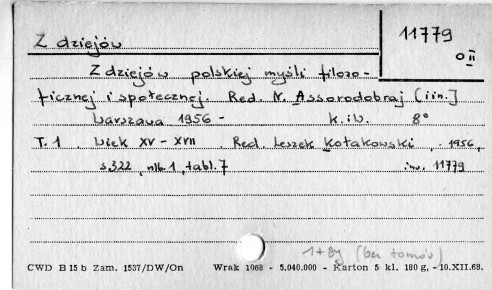 Z dziejów
11779
O II
Z dziejów polskiej myśli filozo-
ficznej i społecznej. Red. N. Assorodobraj [i in.]
Warszawa 1956 - k.i W. 8°
T. 1 . Wiek XV - XVII . Red. Leszek Kołakowski , . 1956,
s. 322 , nlb. 1 , tabl. 7 inw. 11779
1+8g (bez tomów)
CWD B 15 b Zam. 1537/DW/On Wrak 1068 - 5.040.000 - Karton 5 kl. 180 g, - 10.XII.68.